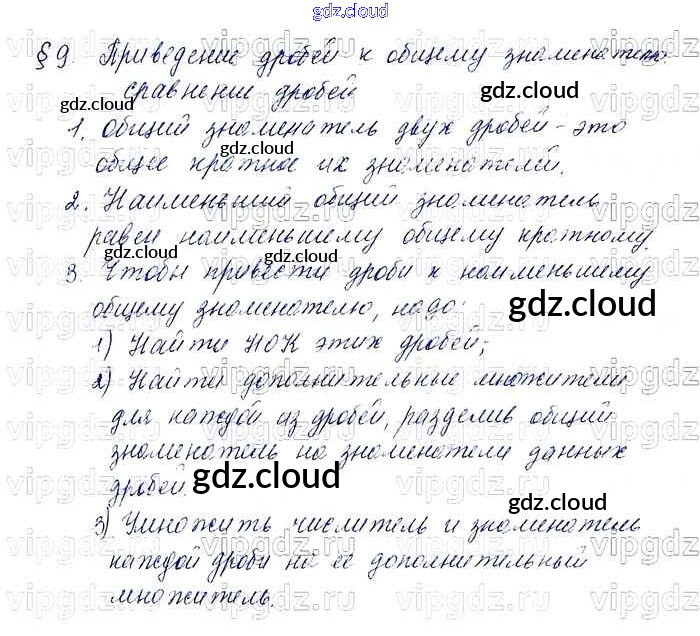 gdz.cloud
§ 9. Приведение дробей к общему знаменателю.
сравнение дробей
gdz.cloud gdz.cloud
1. Общий знаменатель двух дробей - это
gdz.cloud
общее кратное их знаменателей.
2. Наименьший общий знаменатель
равен наименьшему общему кратному.
gdz.cloud
3. Чтобы привести дроби к наименьшему
общему знаменателю, надо:
gdz.cloud
1) Найти НОК этих дробей;
2) Найти дополнительные множители
для каждой из дробей, разделив общий
знаменатель на знаменатели данных
дробей.
gdz.cloud
gdz.cloud
3) Умножить числитель и знаменатель
каждой дроби на её дополнительный
множитель.